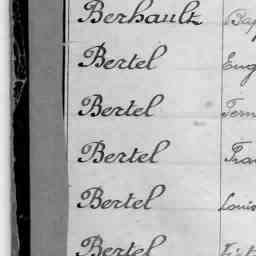 Berhault
Bertel Eug
Bertel
Bertel
Bertel Louis
Bertel